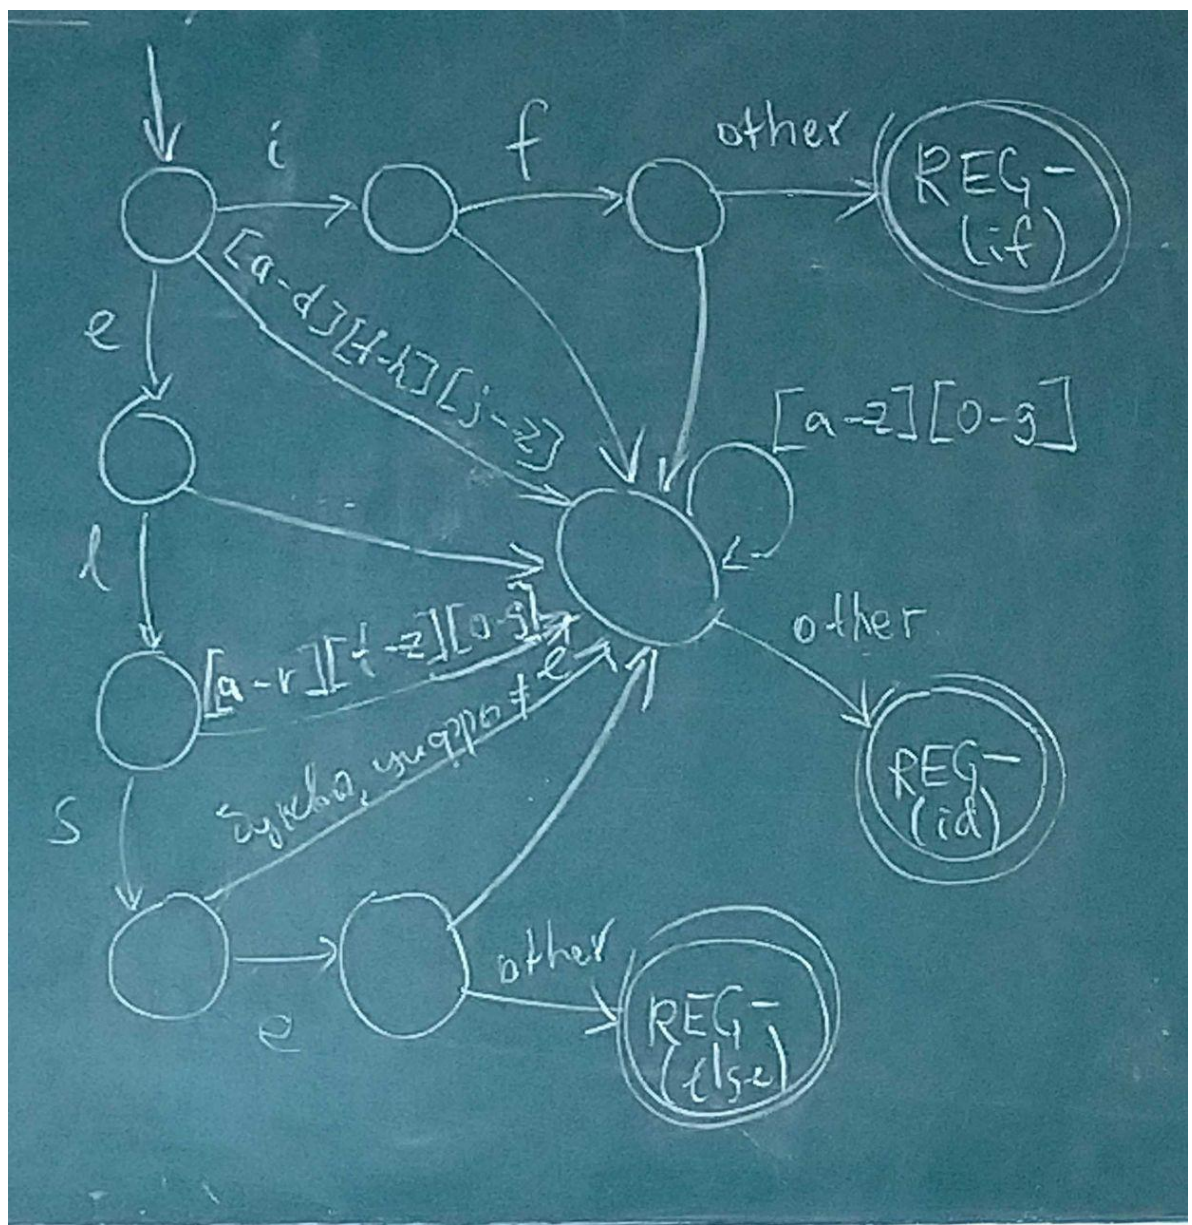 i
f
other
REG-
(if)
[a-d][f-h][j-z]
e
[a-z][0-9]
l
[a-r][t-z][0-9]
other
буква, цифра ≠ e
REG-
(id)
s
other
e
REG-
(else)